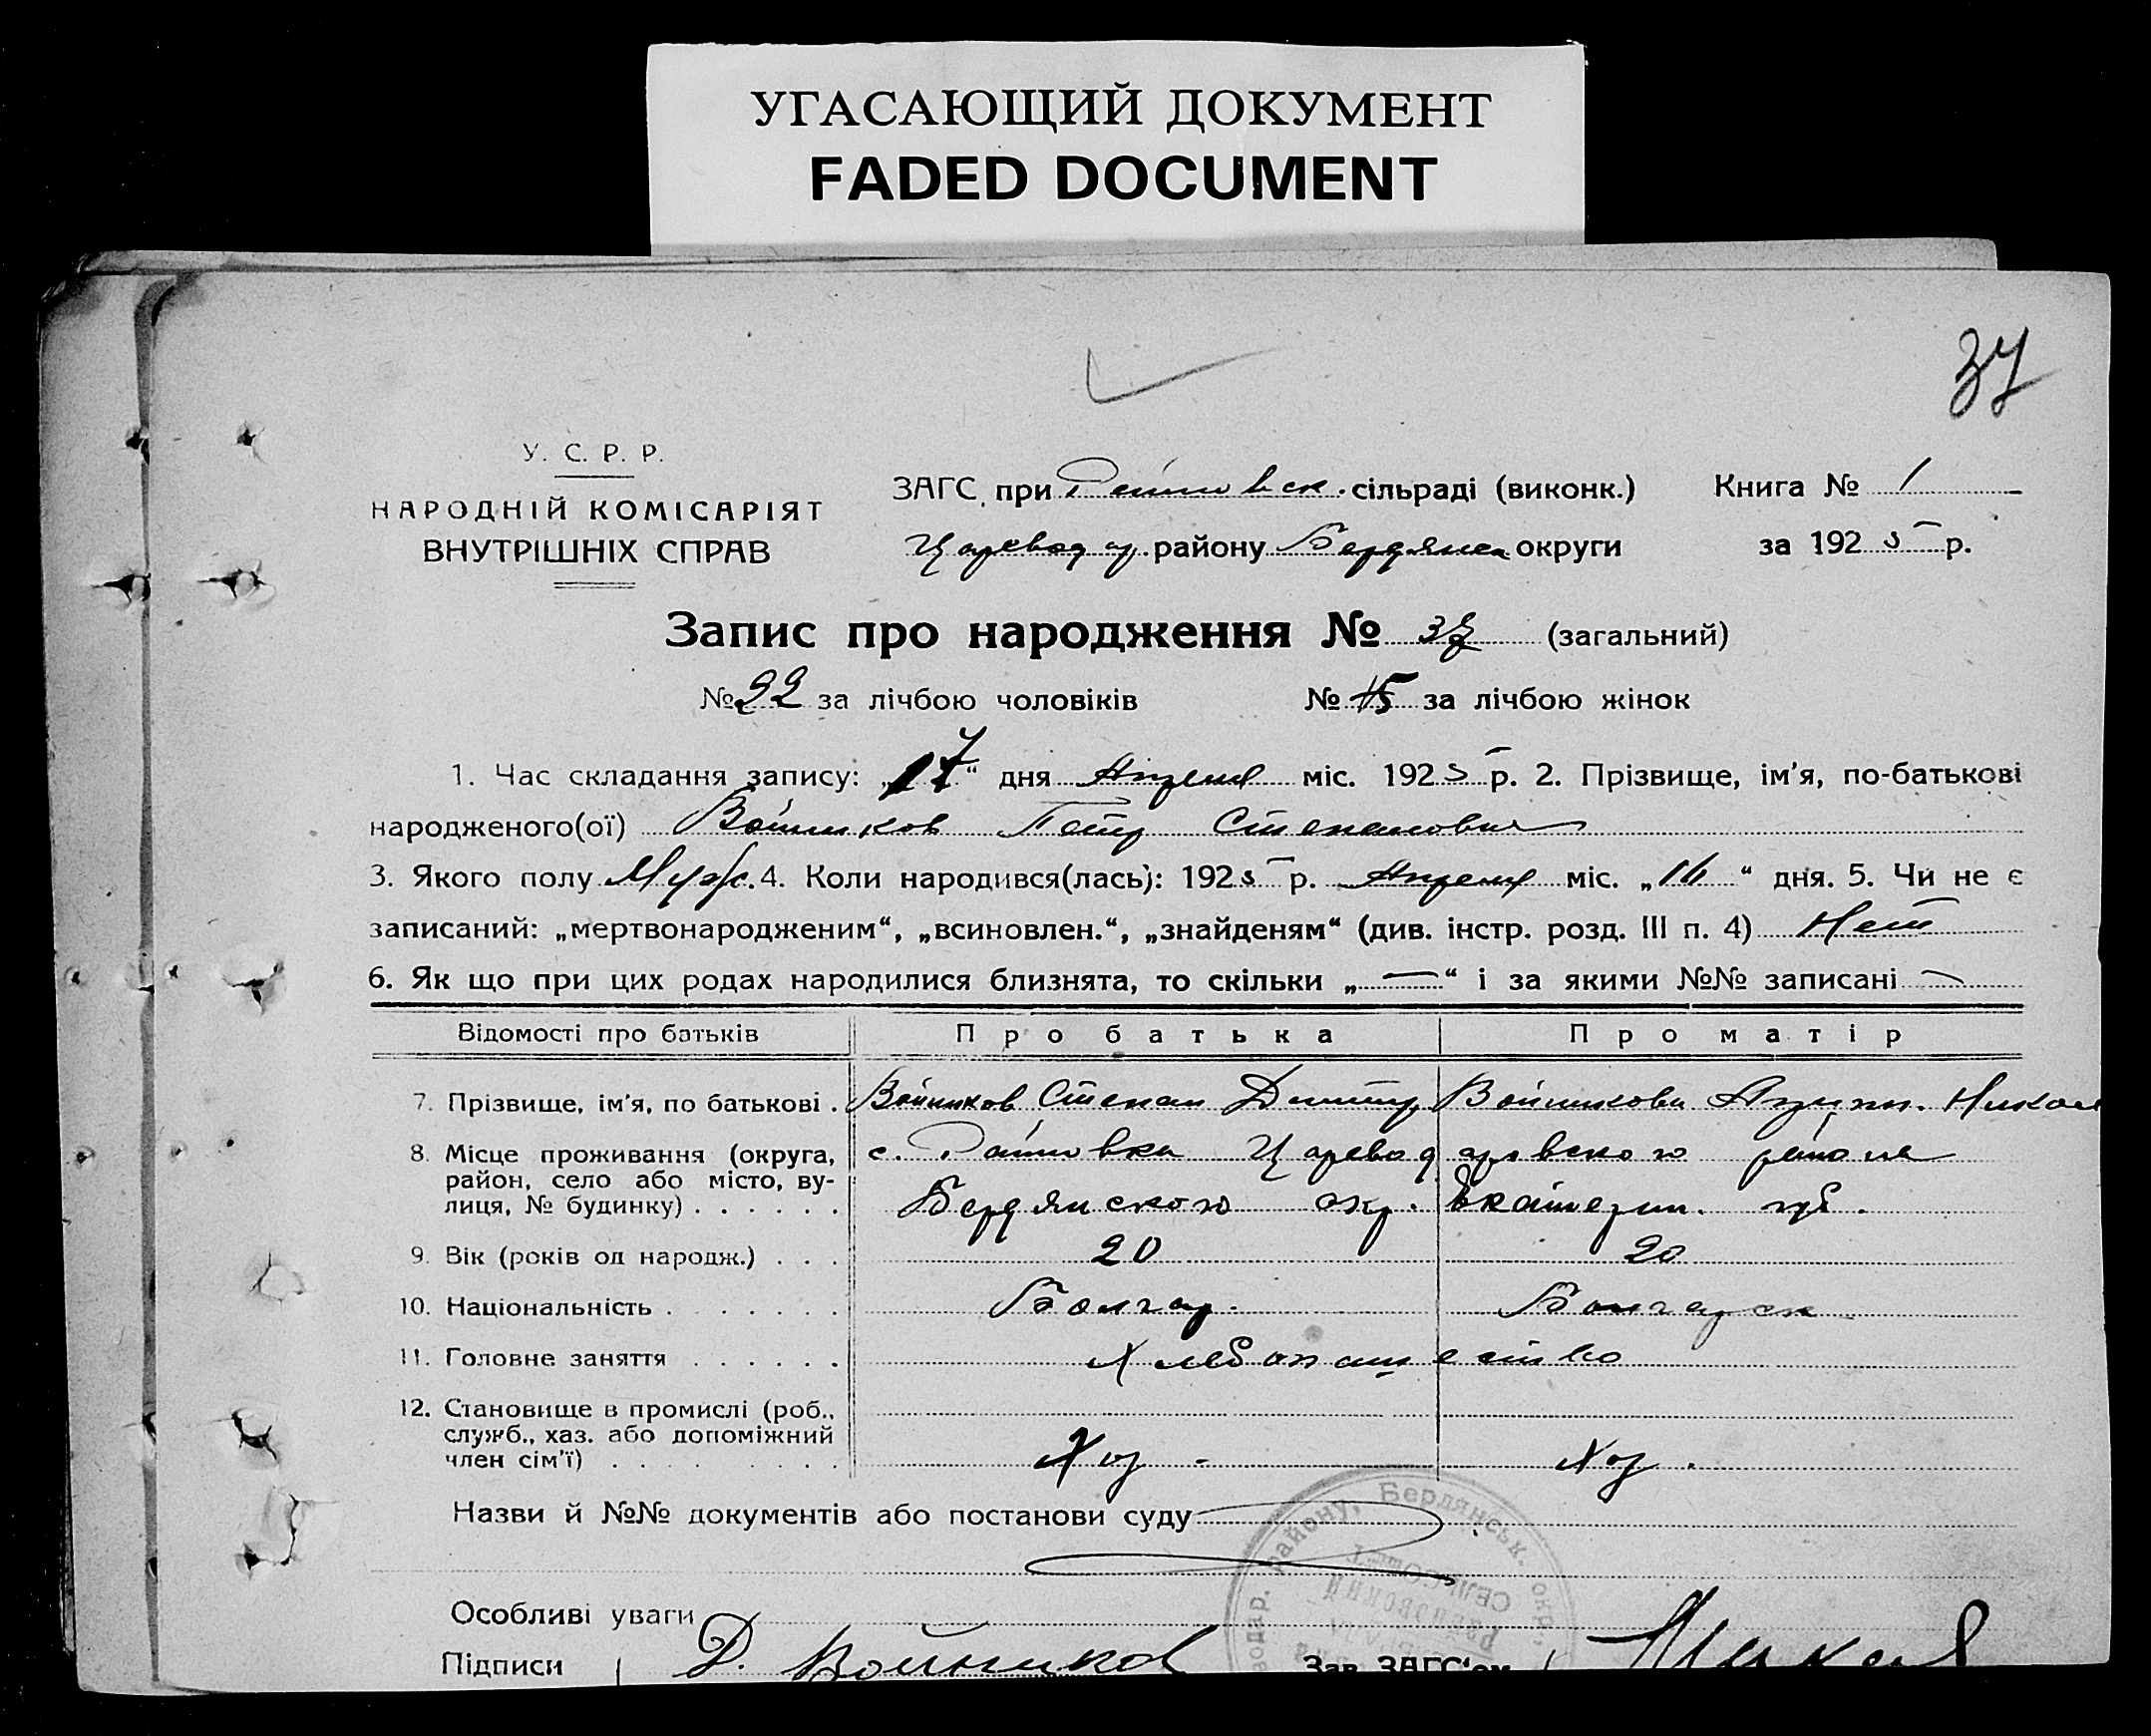 УГАСАЮЩИЙ ДОКУМЕНТ
FADED DOCUMENT
37
У. С. Р. Р.
НАРОДНІЙ КОМІСАРІЯТ
ВНУТРІШНІХ СПРАВ
ЗАГС при Райновск. сільраді (виконк.) Книга № 1
Цareвод ар. району Бердянск округи за 1925 р.
Запис про народження № 37 (загальний)
№ 22 за лічбою чоловіків № 15 за лічбою жінок
1. Час складання запису: „17“ дня Апреля міс. 1925 р. 2. Прізвище, ім'я, по-батькові
народженого(ої) Войников Петр Степанович
3. Якого полу Муж. 4. Коли народився(лась): 1925 р. Апреля міс. „16“ дня. 5. Чи не є
записаний: „мертвонародженим“, „всиновлен.“, „знайденям“ (див. інстр. розд. III п. 4) Нет
6. Як що при цих родах народилися близнята, то скільки „—“ і за якими №№ записані —
Відомості про батьків Про батька Про матір
7. Прізвище, ім'я, по батькові . Войников Степан Дмитр. Войникова Никол
8. Місце проживання (округа, район, село або місто, вулиця, № будинку) . . . . . . с. Райновка Цареводаровского района
Бердянского окр. Екатерин. губ.
9. Вік (років од народж.) . . . 20 20
10. Національність . . . . . . . Болгар. Болгарск
11. Головне заняття . . . . . . Хлебопашество
12. Становище в промислі (роб., служб., хаз. або допоміжний член сім'ї) . . . . . . . . Хоз. Хоз.
Назви й №№ документів або постанови суду
Особливі уваги
Підписи Д. Войников Зав. ЗАГС'ом
одар. району, Бердянськ. окр.